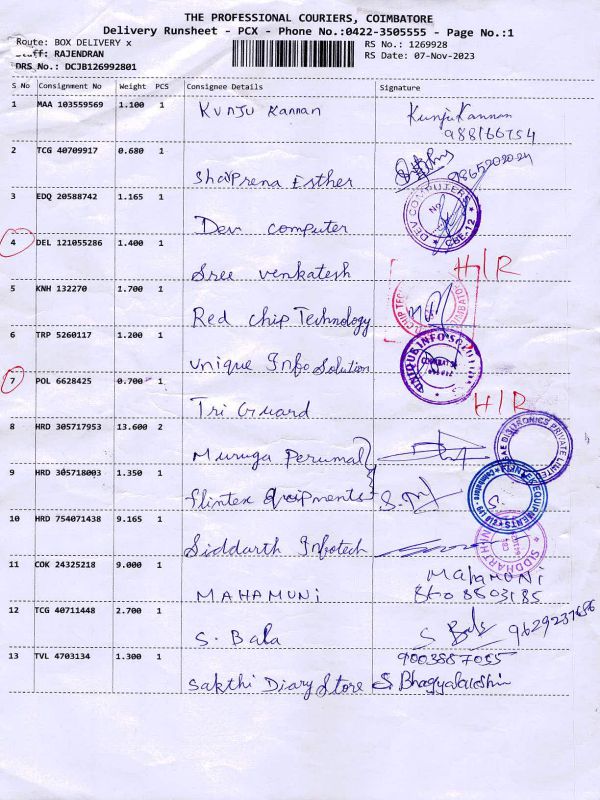 THE PROFESSIONAL COURIERS, COIMBATORE
Delivery Runsheet - PCX - Phone No.:0422-3505555 - Page No.:1
Route: BOX DELIVERY x
RS No.: 1269928
Staff: RAJENDRAN
RS Date: 07-Nov-2023
DRS No.: DCJB126992801
S No Consignment No Weight PCS Consignee Details Signature
1 MAA 103559569 1.100 1 Kunju Kannan Kunju Kannan
2 TCG 40709917 0.680 1
Sharprena Esther
3 EDQ 20588742 1.165 1
Dev computer
DEV COMPUTERS CBE-12
4 DEL 121055286 1.400 1
Sree venkatesh H/R
5 KNH 132270 1.700 1
Red chip Technology
6 TRP 5260117 1.200 1
unique Info Solution
UNIQUE INFO SOLUTIONS
7 POL 6628425 0.700 1
Tri Guard H/R
8 HRD 305717953 13.600 2
Muruga Perumal
9 HRD 305718003 1.350 1
flintex Equipments
10 HRD 754071438 9.165 1
Siddarth Infotech
11 COK 24325218 9.000 1
MAHAMUNI MAHAMUNI
12 TCG 40711448 2.700 1
S. Bala S Bala 9629237686
13 TVL 4703134 1.300 1 9003887055
Sakthi Diary Store S Bhagyalakshmi